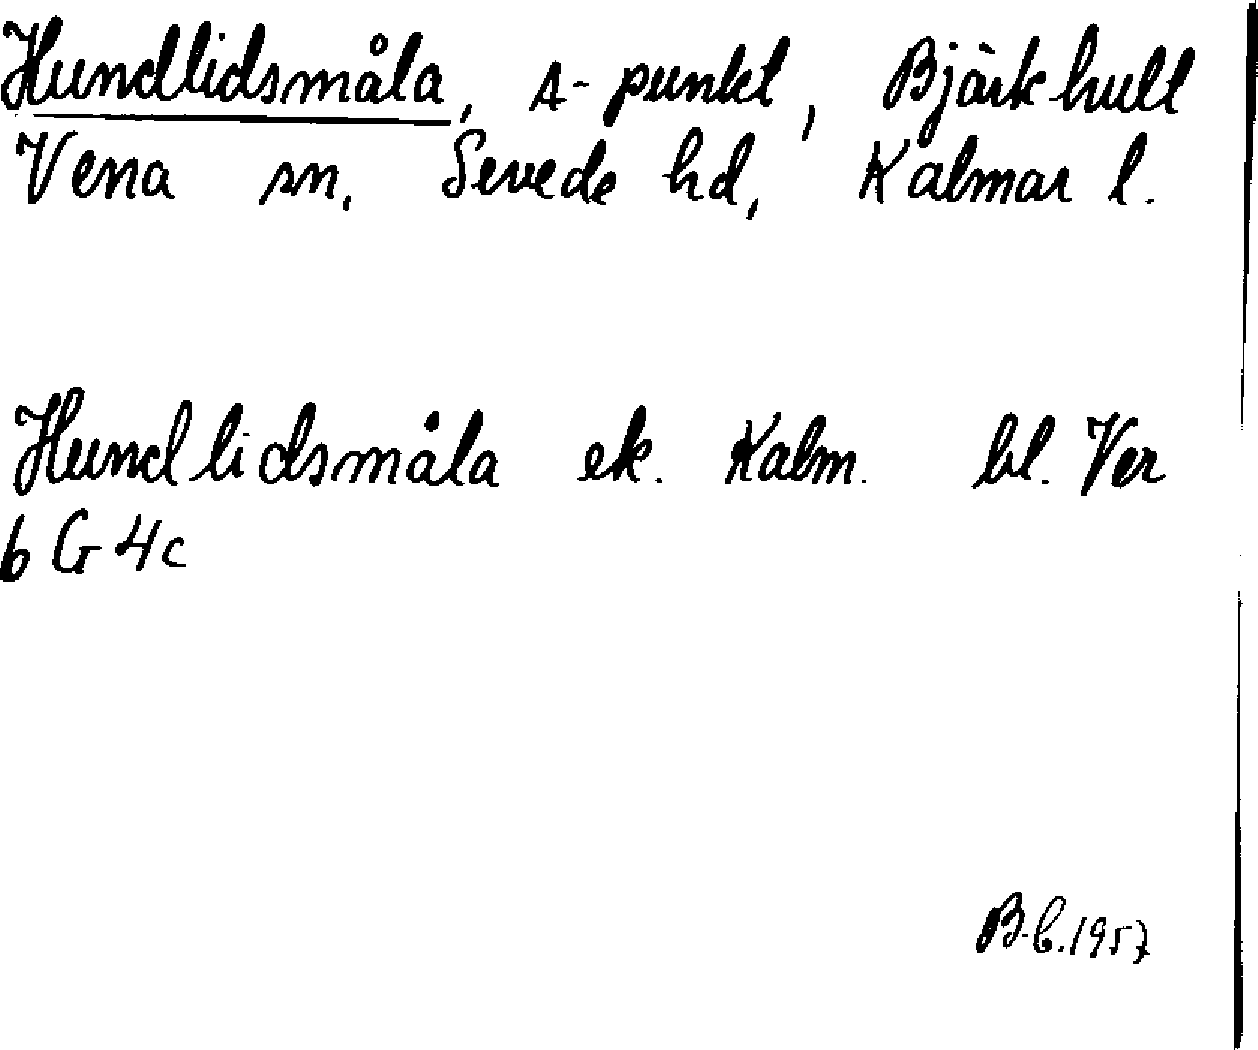 Hundlidsmåla, A-punkt, Björkhult
Vena sn, Sevede hd, Kalmar l.
Hundlidsmåla ek. Kalm. bl. Ver
6 G 4c
B-b.1957